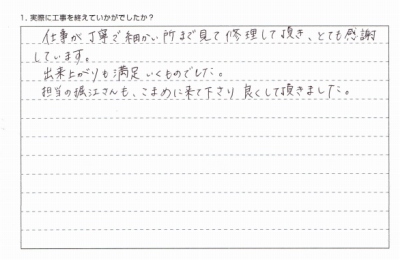 1. 実際に工事を終えていかがでしたか？
仕事が丁寧で細かい所まで見て修理して頂き、とても感謝
しています。
出来上がりも満足いくものでした。
担当の堀江さんも、こまめに来て下さり良くして頂きました。